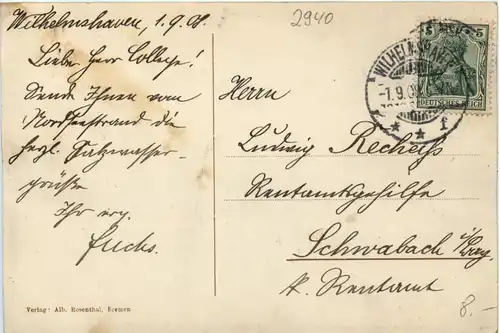 Wilhelmshaven, 1.9.08.
2940
Lieber Herr College!
Sende Ihnen vom
Nordseestrand die
herzl. Salzwasser-
grüße
Ihr erg.
Fuchs.
5 5
DEUTSCHES REICH
WILHELMSHAVEN
-1.9.08
* * f
Herrn
Ludwig
Rentamtsgehilfe
Schwabach i/Bay.
k. Rentamt
8.-
Verlag: Alb. Rosenthal, Bremen